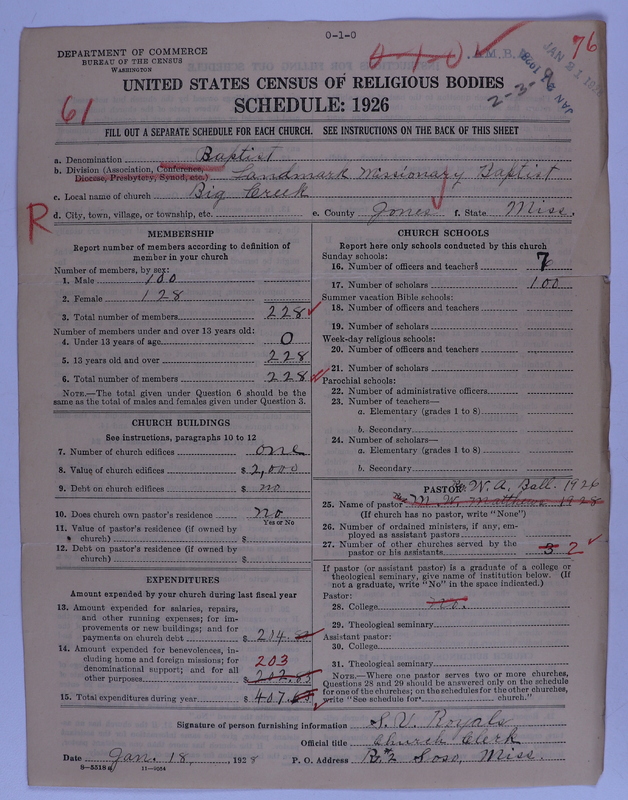 0-1-0
DEPARTMENT OF COMMERCE
BUREAU OF THE CENSUS
WASHINGTON
0 1 0 M.B.
76
UNITED STATES CENSUS OF RELIGIOUS BODIES
2-3
61
SCHEDULE: 1926
FILL OUT A SEPARATE SCHEDULE FOR EACH CHURCH. SEE INSTRUCTIONS ON THE BACK OF THIS SHEET
a. Denomination Baptist
b. Division (Association, Conference, Diocese, Presbytery, Synod, etc.) Landmark Missionary Baptist
c. Local name of church Big Creek
R
d. City, town, village, or township, etc. e. County Jones f. State Miss.
MEMBERSHIP
Report number of members according to definition of
member in your church
Number of members, by sex:
1. Male 100
2. Female 128
3. Total number of members 228
Number of members under and over 13 years old:
4. Under 13 years of age 0
5. 13 years old and over 228
6. Total number of members 228
NOTE.—The total given under Question 6 should be
the same as the total of males and females given under Question 3.
CHURCH BUILDINGS
See instructions, paragraphs 10 to 12
7. Number of church edifices one
8. Value of church edifices $ 2,000
9. Debt on church edifices $ no
10. Does church own pastor's residence? no
Yes or No
11. Value of pastor's residence (if owned by
church) $
12. Debt on pastor's residence (if owned by
church) $
EXPENDITURES
Amount expended by your church during last fiscal year
13. Amount expended for salaries, repairs,
and other running expenses; for im-
provements or new buildings; and for
payments on church debt $ 204.
14. Amount expended for benevolences, in-
cluding home and foreign missions; for
denominational support; and for all
203
other purposes $ 202.85
15. Total expenditures during year $ 407.
CHURCH SCHOOLS
Report here only schools conducted by this church
Sunday schools:
16. Number of officers and teachers 7
17. Number of scholars 100
Summer vacation Bible schools:
18. Number of officers and teachers
19. Number of scholars
Week-day religious schools:
20. Number of officers and teachers
21. Number of scholars
Parochial schools:
22. Number of administrative officers
23. Number of teachers—
a. Elementary (grades 1 to 8)
b. Secondary
24. Number of scholars—
a. Elementary (grades 1 to 8)
b. Secondary
PASTOR: W. A. Ball. 1926
25. Name of pastor M. W. Matthews 1928
(If church has no pastor, write "None")
26. Number of ordained ministers, if any, em-
ployed as assistant pastors
27. Number of other churches served by the
pastor or his assistants 3 2
If pastor (or assistant pastor) is a graduate of a college or
theological seminary, give name of institution below. (If
not a graduate, write "No" in the space indicated.)
Pastor:
28. College no.
29. Theological seminary
Assistant pastor:
30. College
31. Theological seminary
NOTE.—Where one pastor serves two or more churches,
Questions 28 and 29 should be answered only on the schedule
for one of the churches; on the schedules for the other churches,
write "See schedule for church."
Signature of person furnishing information S. V. Royals
Official title Church Clerk
Date Jan. 18, 1928 P. O. Address Rt. #2 Soso, Miss.
8-5518a 11-9034